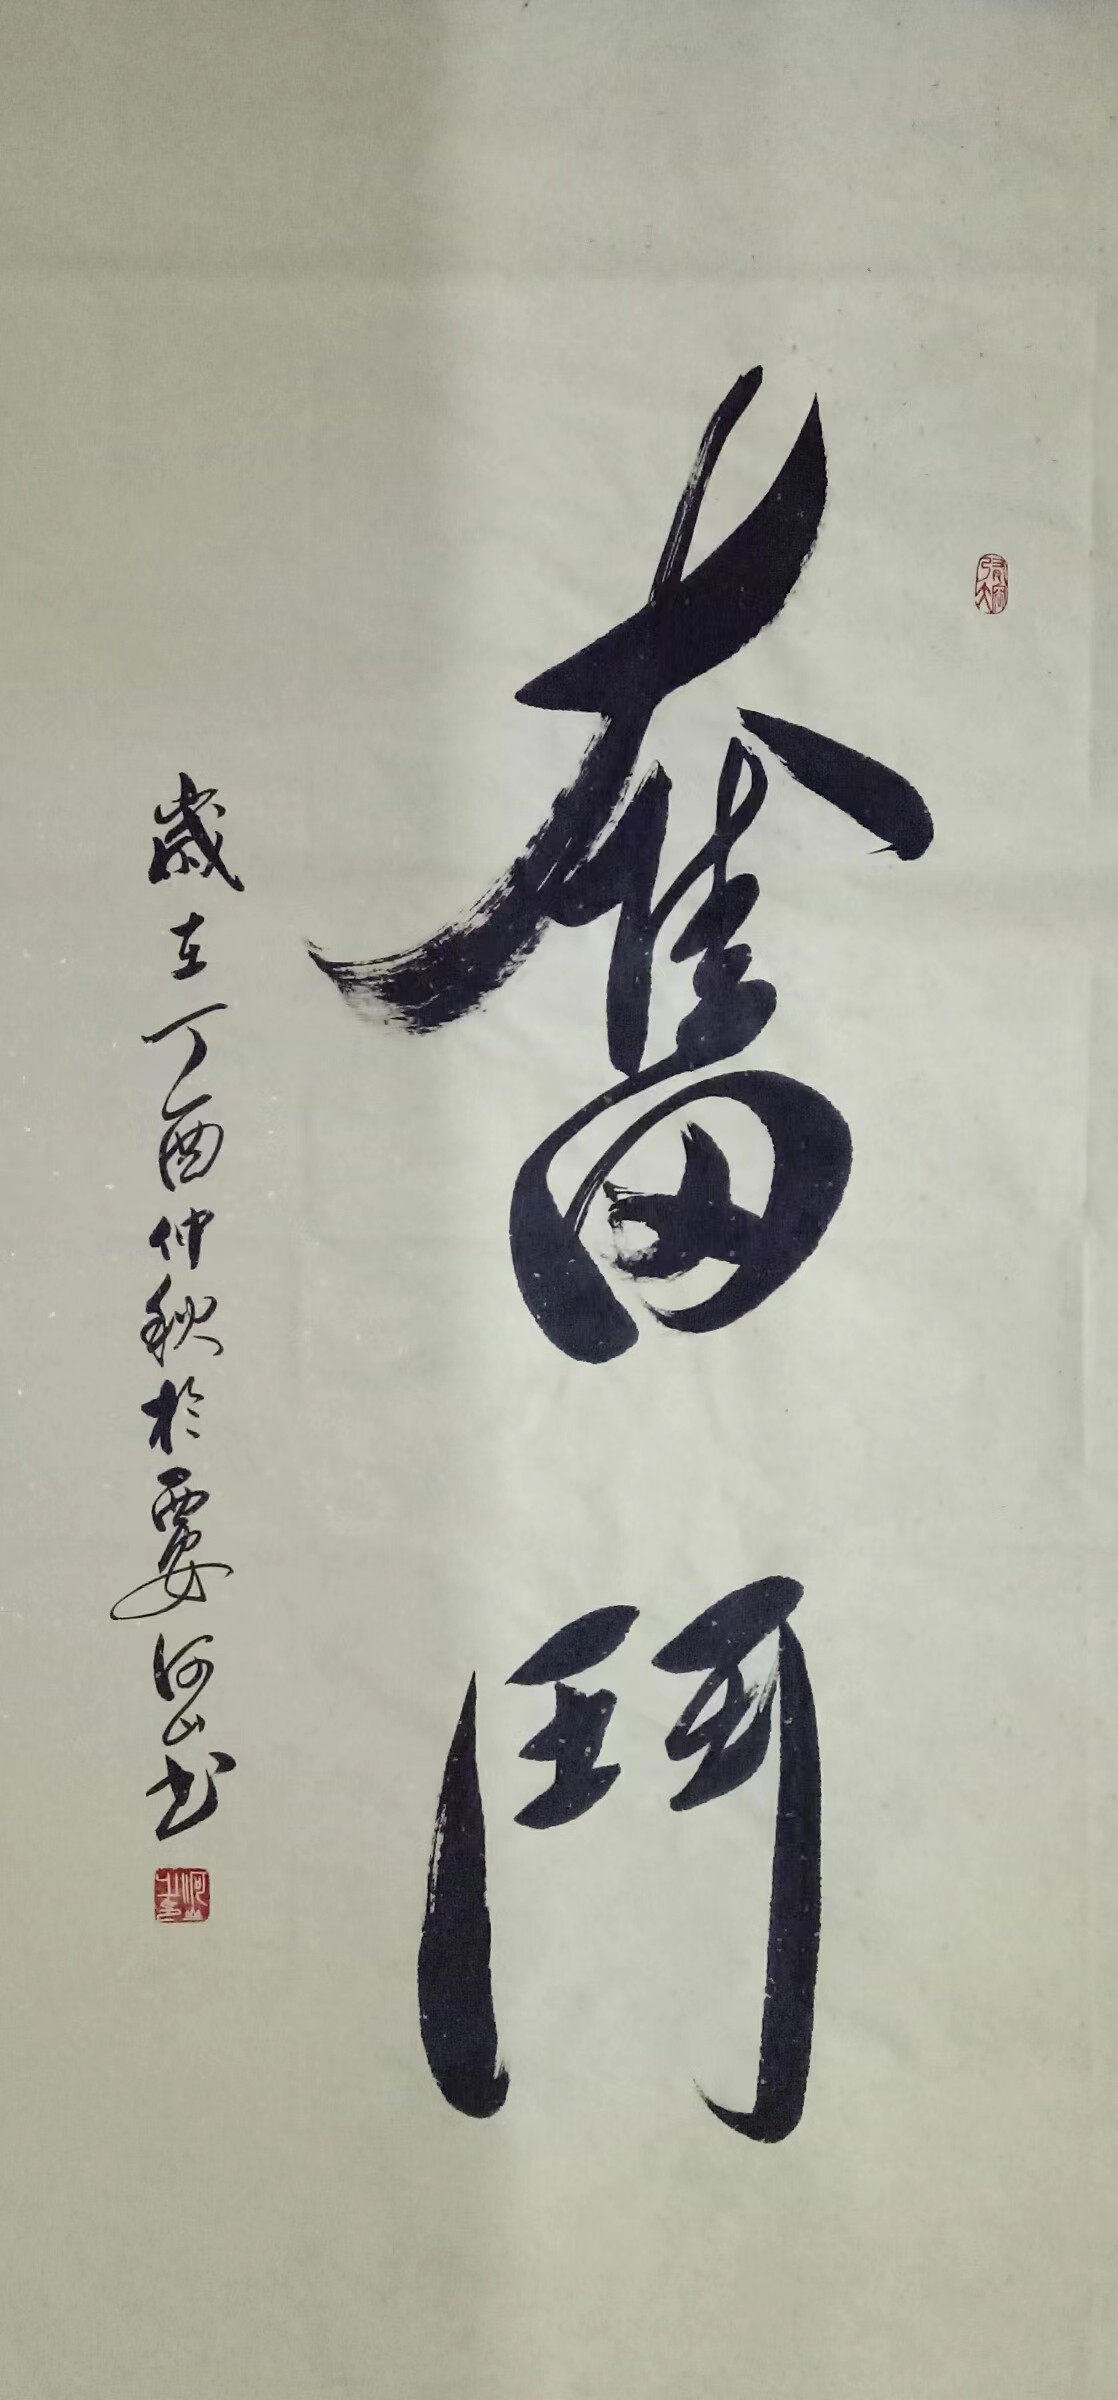 奮鬥
歲在丁酉仲秋於西安河山书